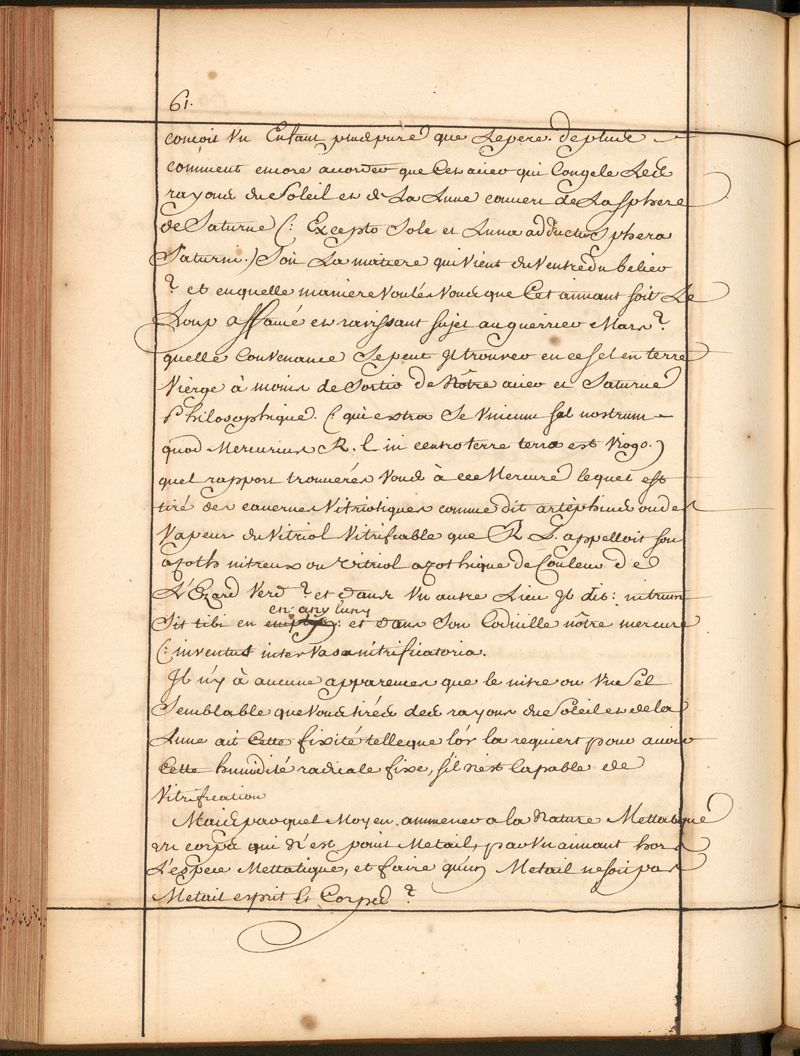 61.
concoit un Enfant plus pure que le pere. de plus
comment encore acorder que cet acier qui congele les
rayons du Soleil et de La Lune couvert de La sphere
de Saturne (: Excepto Sole et Luna adductu Sphera
Saturni.) Soit La matiere qui vient du Ventre du belier
? et en quelle maniere voulés vous que Cet aimant soit Le
Loup affamé et ravissant sujet au guerrier Mars?
quelle Convenance se peut Jl trouver en ce sel en terre
Vierge à moins de Sortir de Nôtre acier et Saturne
Philosophique. (qui extra se unicum sal nostrum
quod Mercurius R. L in centro terre terra est Virgo.)
quel rapport trouverés vous à ce Mercure lequel est
tiré des cavernes Vitrioliques comme dit artephius ou des
Vapeur du Vitriol Vitrifiable que R L. appelloit son
azoth nitreux ou Vitriol azothique de Couleur de
L'Ezard Verd? et dans Un autre Lieu Jl dit: nitrum
Sit tibi en en any luny : et dans Son Codicille nôtre mercure
(: inventus inter Vasa nitrificatoria.
Jl n'y à aucune apparences que le nitre ou Un Sel
Semblable que vous tirés des rayons du Soleil et de la
Lune ait Cette fixité telle que l'or la requiert pour avoir
Cette humidité radicale fixe, s'il n'est Capable de
Vitrification
Mais par quel Moyen ammener a la Nature Mettalique
un corps qui n'est point Metail, par Un aimant hors
L'espece Mettalique, et faire qu'un Metail ne soit pas
Metail esprit et Corps?